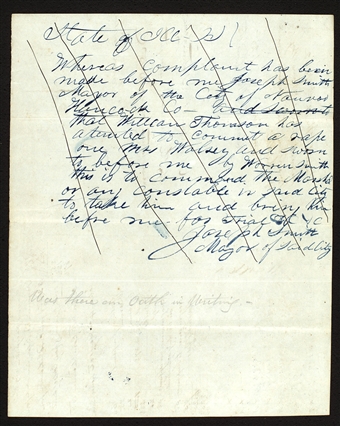 State of Ill
Whereas complaint has been
made before me Joseph Smith
Mayor of the City of Nauvoo
Hancock Co
that William Thomson has
attemted to commit a rape
one Mrs Wolsey and Sworn
to before me by
this is to commend the Marshal
or any Constable in said city
to take him and bring him
before me for trial
Joseph Smith
Mayor of Said City
Was there an Oath in Writing. -